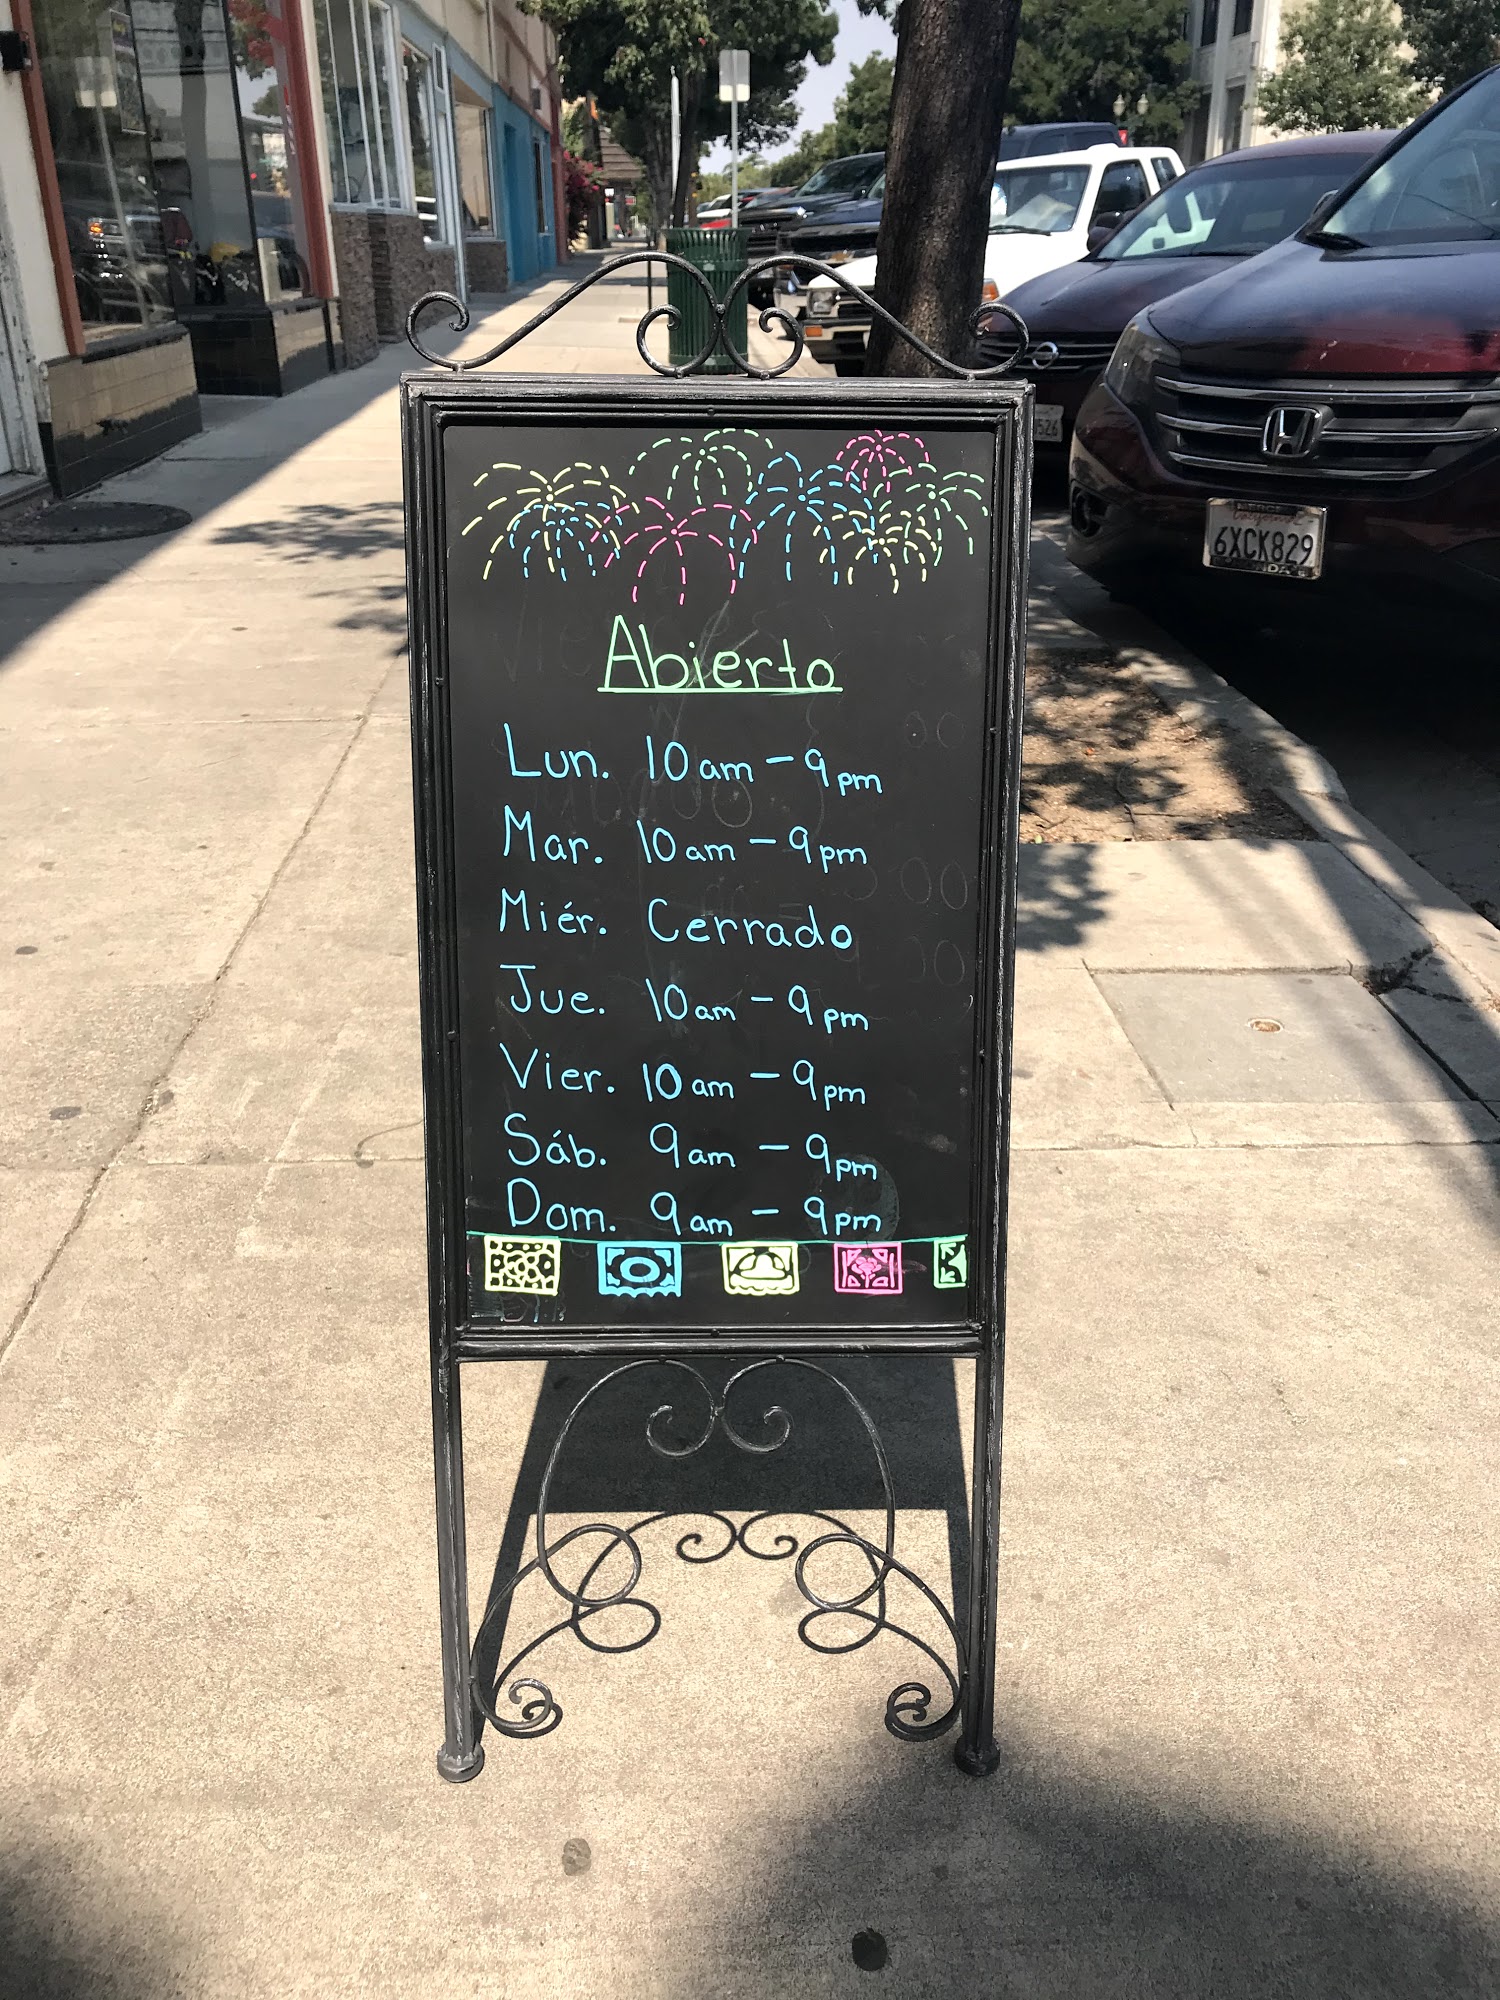 Abierto
Lun. 10am - 9pm
Mar. 10am - 9pm
Miér. Cerrado
Jue. 10am - 9pm
Vier. 10am - 9pm
Sáb. 9am - 9pm
Dom. 9am - 9pm
California
6XCK829